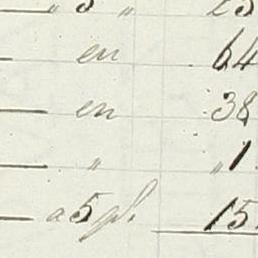 „ 5 „ 25
en 64
en 38
„ „1
a 5 pf. 15.